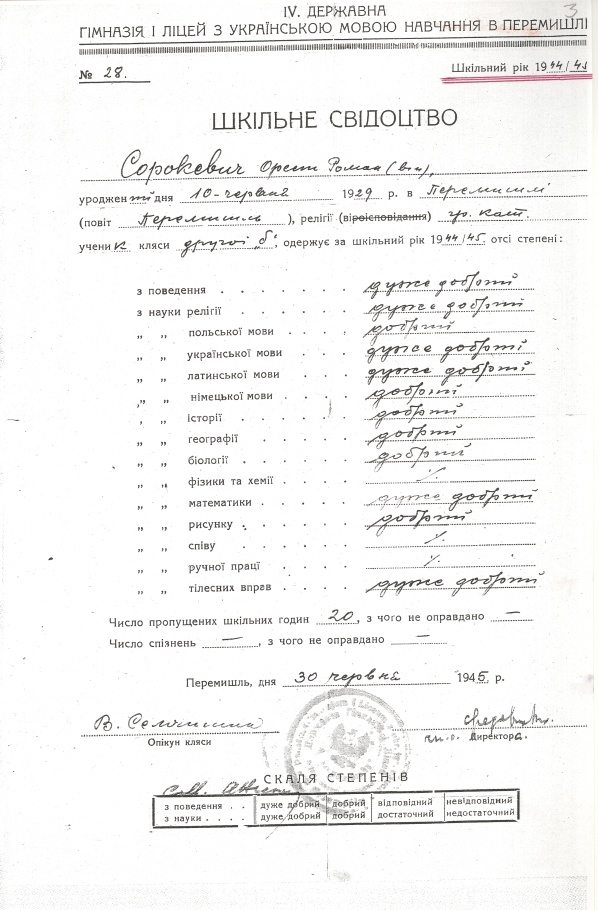 3
IV. ДЕРЖАВНА
ГІМНАЗІЯ І ЛІЦЕЙ З УКРАЇНСЬКОЮ МОВОЮ НАВЧАННЯ В ПЕРЕМИШЛІ
№ 28. Шкільний рік 1944/45
ШКІЛЬНЕ СВІДОЦТВО
Сорокевич Орест Роман
уродженийдня 10-червня 1929 р. в Перемишлі
(повіт Перемишль), релігії (віроісповідання) гр. кат.
ученик кляси другої „б", одержує за шкільний рік 1944/45. отсі степені:
з поведення . . . . . . . дуже добрий
з науки релігії . . . . . . дуже добрий
„ „ польської мови . . . . добрий
„ „ української мови . . . дуже добрий
„ „ латинської мови . . . . дуже добрий
„ „ німецької мови . . . . добрий
„ „ історії . . . . . . добрий
„ „ географії . . . . . добрий
„ „ біології . . . . . . добрий
„ „ фізики та хемії . . . . %.
„ „ математики . . . . . дуже добрий
„ „ рисунку . . . . . . добрий
„ „ співу . . . . . . %.
„ „ ручної праці . . . . %.
„ „ тілесних вправ . . . . дуже добрий
Число пропущених шкільних годин 20, з чого не оправдано —
Число спізнень —, з чого не оправдано —
Перемишль, дня 30 червня 1945 р.
В.
Опікун кляси Директора.
СКАЛЯ СТЕПЕНІВ
з поведення . . дуже добрий добрий відповідний невідповідний
з науки . . . . дуже добрий добрий достаточний недостаточний